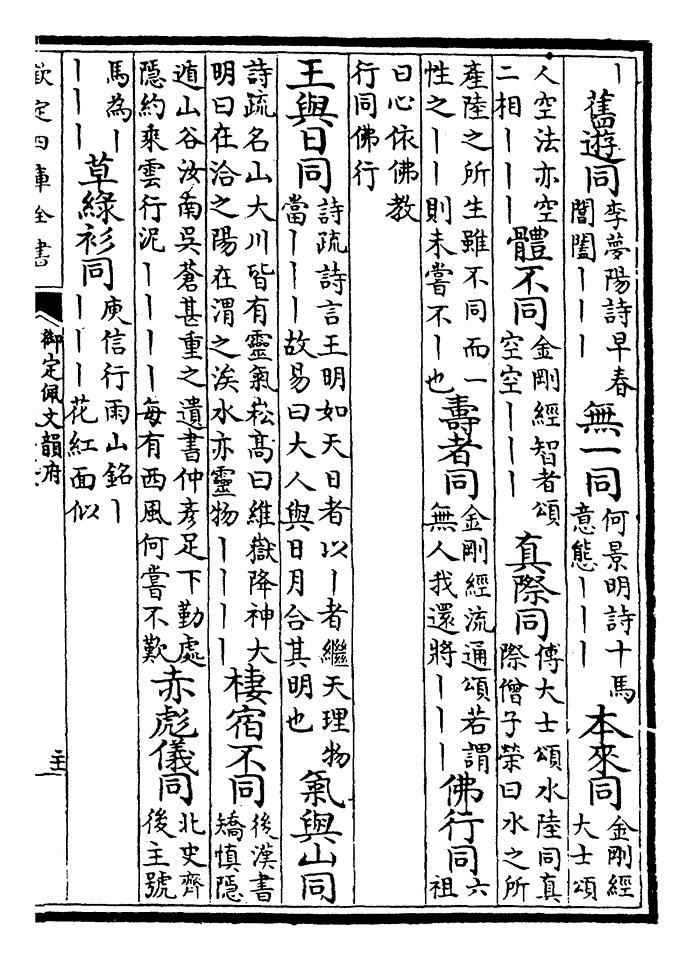 丨
舊遊同
李夢陽詩早春
閶闔丨丨丨
無一同
何景明詩十馬
意態丨丨丨
本來同
金剛經
大士頌
人空法亦空
二相丨丨丨
體不同
金剛經智者頌
空空丨丨丨
真際同
傅大士頌水陸同真
際僧子榮曰水之所
產陸之所生雖不同而一
性之丨丨則未嘗不丨也
壽者同
金剛經流通頌若謂
無人我還將丨丨丨
佛行同
六
祖
曰心依佛教
行同佛行
王與日同
詩疏詩言王明如天日者以丨者繼天理物
當丨丨丨故易曰大人與日月合其明也
氣與山同
詩疏名山大川皆有靈氣崧高曰維嶽降神大
明曰在洽之陽在渭之涘水亦靈物丨丨丨丨
棲宿不同
後漢書
矯慎隱
遁山谷汝南吳蒼甚重之遺書仲彥足下勤處
隱約乘雲行泥丨丨丨丨每有西風何嘗不歎
赤彪儀同
北史齊
後主號
馬為丨
丨丨丨
草綠衫同
庾信行雨山銘丨
丨丨丨花紅面似
欽定四庫全書
御定佩文韻府